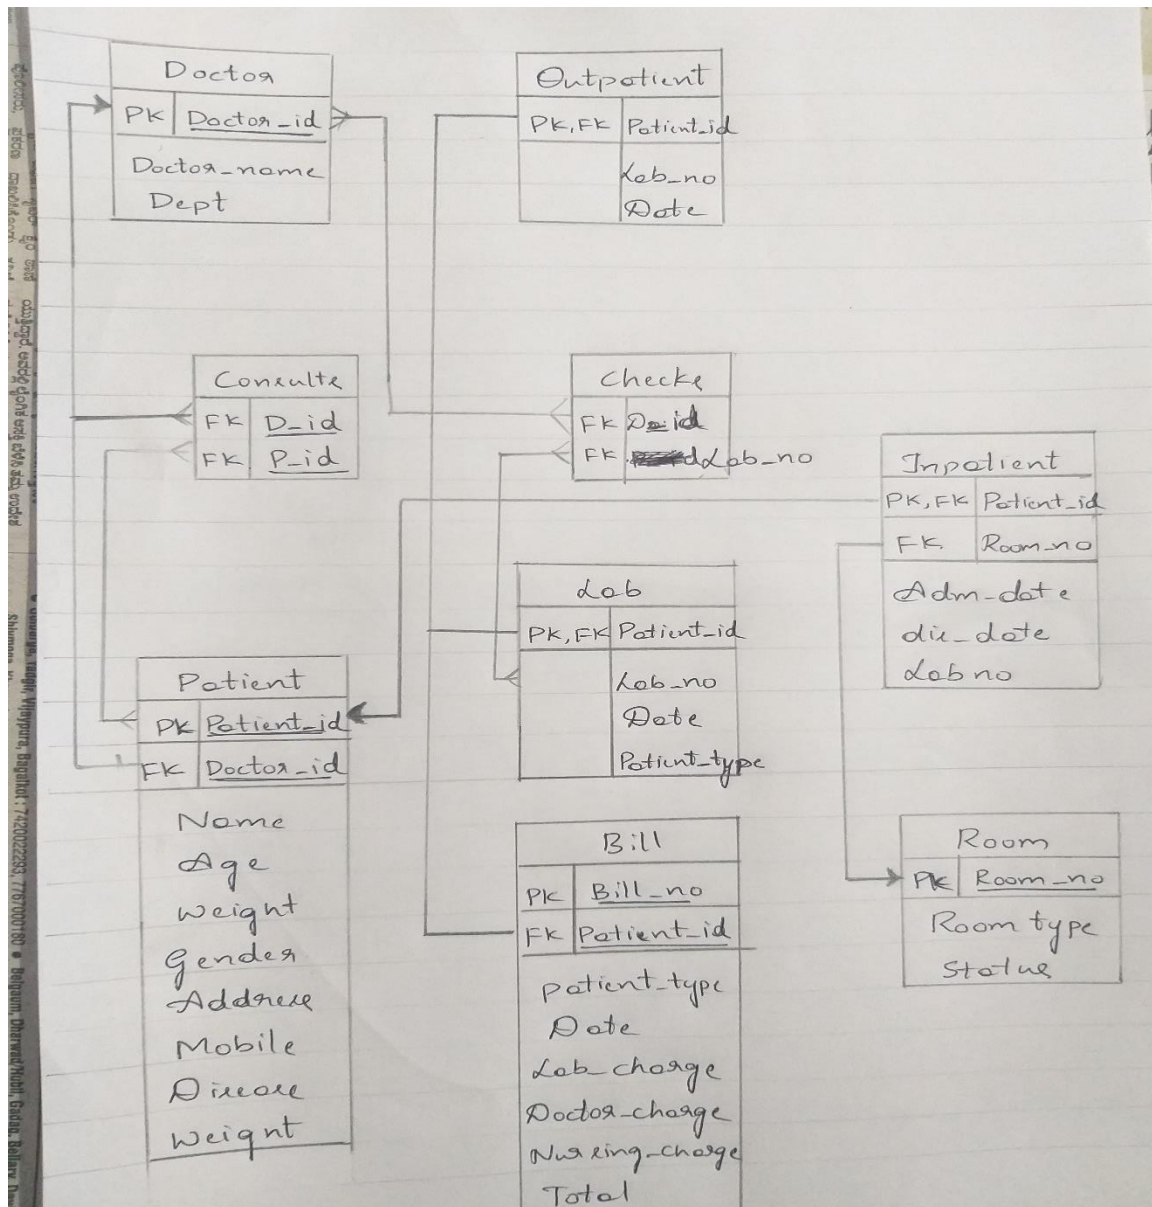 Doctor
PK Doctor_id
Doctor_name
Dept
Outpatient
PK, FK Patient_id
Lab_no
Date
Consults
FK D_id
FK P_id
Checks
FK D_id
FK Lab_no
Inpatient
PK, FK Patient_id
FK Room_no
Adm_date
dis_date
Lab no
Lab
PK, FK Patient_id
Lab_no
Date
Patient_type
Patient
PK Patient_id
FK Doctor_id
Name
Age
Weight
Gender
Address
Mobile
Disease
Weight
Bill
PK Bill_no
FK Patient_id
patient_type
Date
Lab_charge
Doctor_charge
Nursing_charge
Total
Room
PK Room_no
Room type
Status
Vijaypura, Bagalkot : 7420022293, 7767000180 ● Belgaum, Dharwad/Hubli, Gadag, Bellary